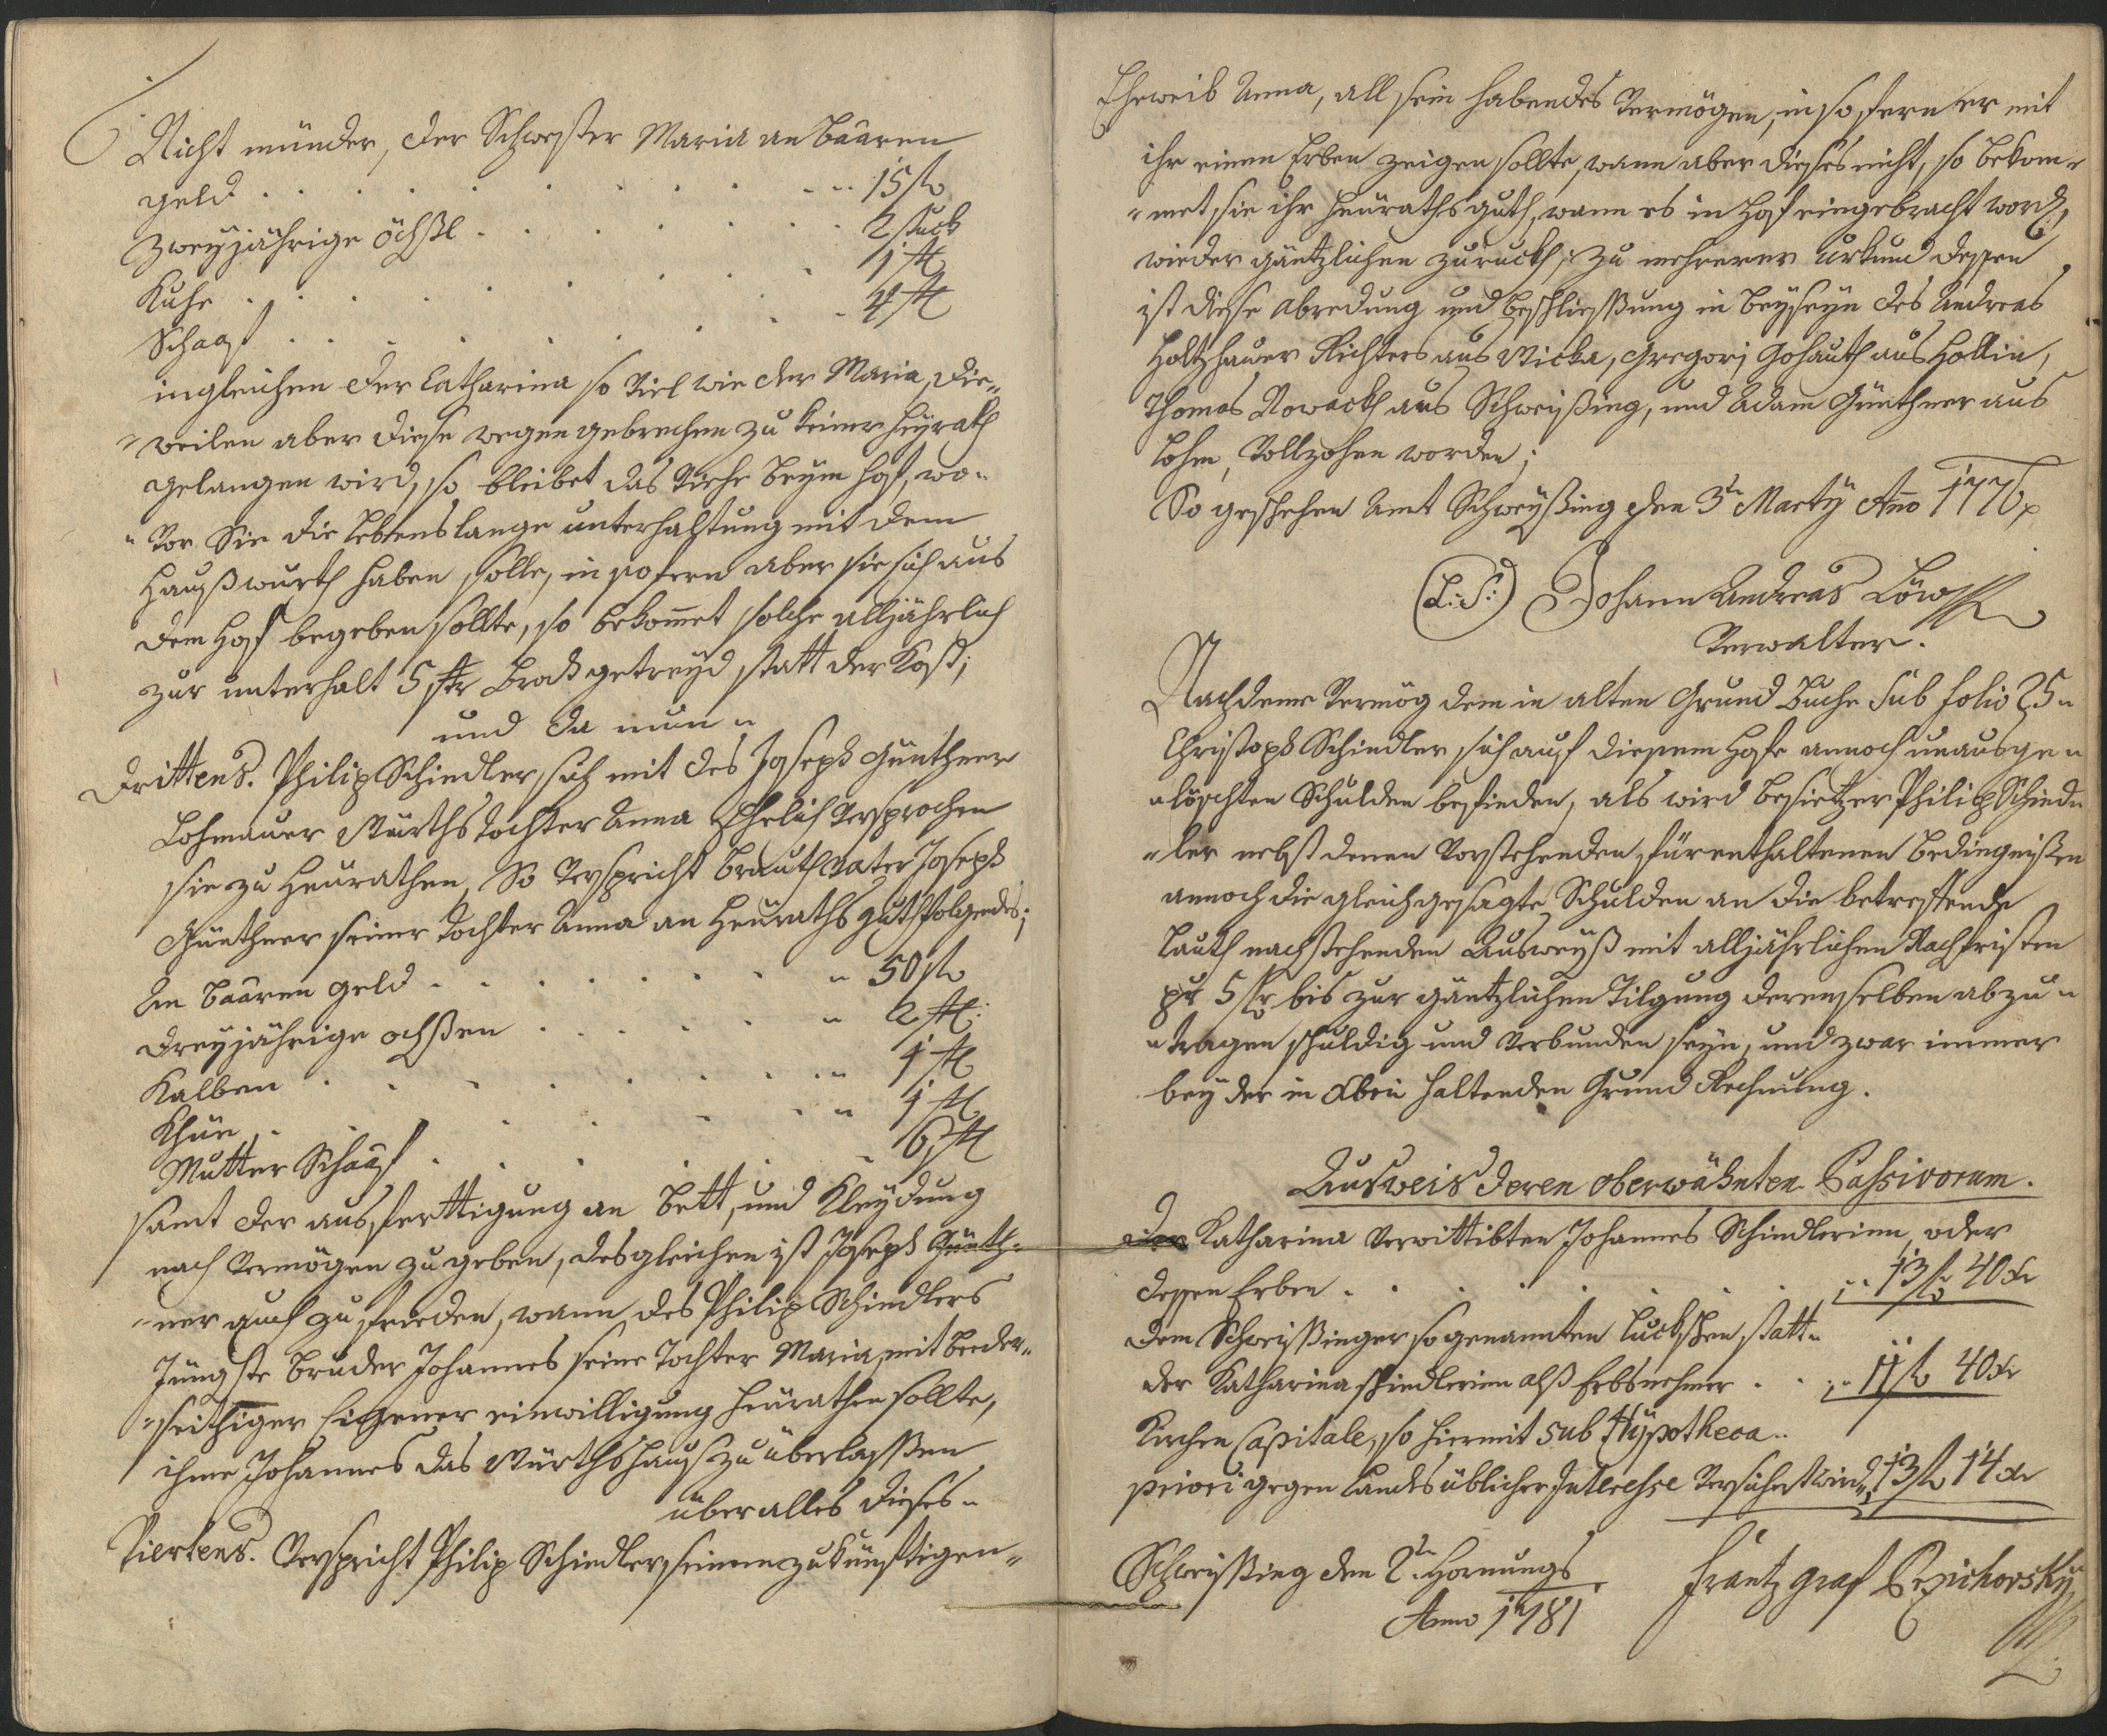 Nicht münder, der Schwester Maria an baaren
geld . . . . . . . . . 15 fl
zweÿjährige öchßl . . . . . . 2 stuck
Kuhe . . . . . . . . 1 st
Schaaf . . . . . . . . 4 st
ingleichen der Catharina so viel wie der Maria, die„
„weilen aber diese wegen gebrechen zu keiner heÿrath
gelangen wird, so bleibet das Viehe beÿm hof, wo„
„vor Sie die lebenslange unterhaltung mit dem
Haußwürth haben solle, in sofern aber sie sich aus
dem hof begeben sollte, so bekomet solche alljährlich
zur unterhalt 5 str Brodtgetreÿd statt der Kost;
und da nun„
Drittens. Philip Schindler, sich mit des Joseph Günthner
Lohmauer Würths Tochter Anna Ehelich versprochen
sie zu heurathen, So verspricht Brauth Vater Joseph
Günthner seiner Tochter Anna an Heuraths guth folgendes;
An baaren geld . . . . . „ 50 fl
dreÿjährige ochßen . . . . „ 2 st:
Kalben . . . . . . . „ 1 st
Khüe . . . . . . „ 1 st
Mutter Schaaf . . . . . 6 st
samt der ausferttigung an bett, und Kleÿdung
nach Vermögen zu geben, desgleichen ist Joseph Günth„
„ner auch zufrieden, wann des Philip Schindlers
Jüngste bruder Johannes seine Tochter Maria, mit beeder„
„seithiger Eigener einwilligung heurathen sollte,
ihme Johannes das Würthshauß zu überlassßen
über alles dieses„
Viertens. Verspricht Philip Schindler seinem zukünftigen„
Eheweib Anna, all sein habendes Vermögen, in so fern er mit
ihr einen Erben zeigen sollte, wann aber dieses nicht, so bekom„
„met sie ihr heuraths guth, wann es in hof eingebracht word,
wieder gäntzlichen zuruckh, zu mehrerer Urkund dessen
ist diese abredung und beschliessßung in beÿseÿn des Andreas
Holtzhauer Richters aus Wicka, Gregorj Gohauth aus Hollin,
Thomas Nowackh aus Schweißing, und Adam Günthner aus
Lohm, Vollzohen worden;
So geschehen Amt Schweÿßing den 3tn Martÿ Año 1776
(L:S:) Johann Andreas Löw
Verwalter.
Nachdeme Vermög dem in alten Grund Buche Sub folio 25„
Christoph Schindler sich auf diesem Hofe annoch unausge„
„löschten Schulden befinden, als wird besietzer Philip Schind„
„ler nebst denen vorstehenden, fürenthaltenen bedingnißen
annoch die gleichgesagte Schulden an die betreffende
lauth nachstehenden Ausweÿß mit alljährlichen Nachfristen
pr 5 fl bis zur gäntzlichen Tilgung derenselben abzu„
„tragen schuldig und verbunden seÿn, und zwar immer
beÿ der in Abtei haltenden Grund Rechnung.
Ausweis deren oberwähnten Passivorum.
Der Katharina Verwittibten Johannes Schindlerinn, oder
dessen Erben . . . . . . . „ 13 fl 40 xr
dem Schweißinger sogenannten luckschen statt„
der Katharina schindlerinn alß Erbsnehmer . . „ 11 fl 40 xr
Kirchen Capitale, so hiermit sub Hÿpotheca„
priori gegen landsüblicher Interesse versichert wird „ 13 fl 14 xr
Schweißing den 2tn Hornungs
Anno 1781
Frantz graf Przichowskÿ